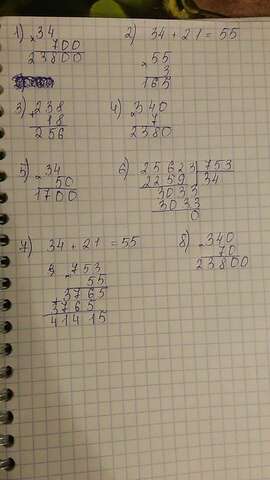 1) × 34
700
23800
2) 34 + 21 = 55
× 55
3
165
3) + 238
18
256
4) × 340
7
2380
5) × 34
50
1700
6) 25623 | 753
2259 | 34
3033
3033
0
7) 34 + 21 = 55
× 753
55
3765
3765
41415
8) × 340
70
23800